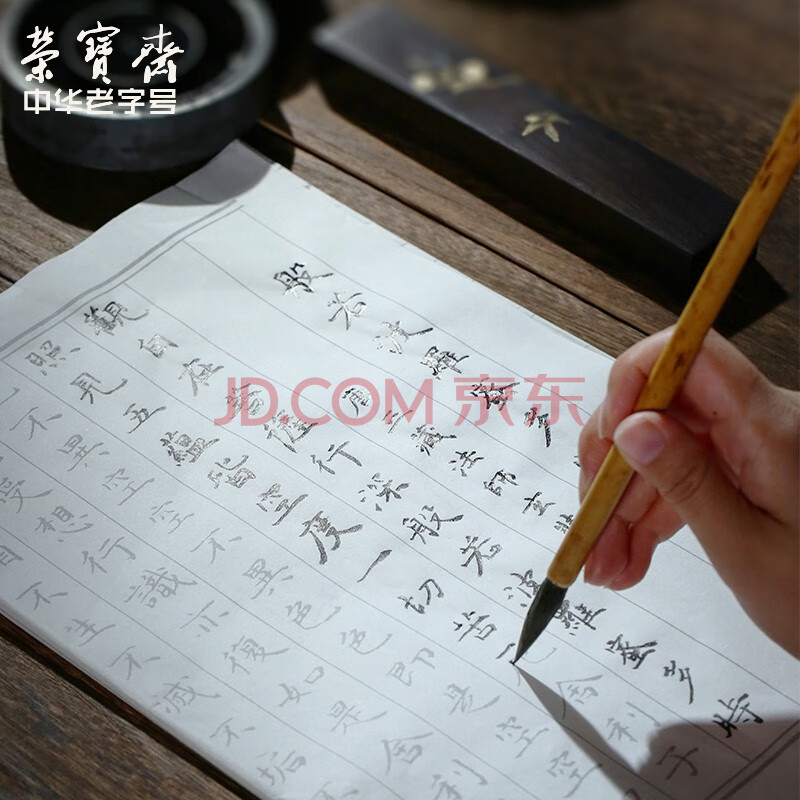 榮寶齋
中华老字号
JD.COM 京东
般若波羅蜜多
唐三藏法師玄奘
觀自在菩薩行深般若波羅蜜多時
照見五蘊皆空度一切苦厄舍利子
不異空空不異色色即是空空
受想行識亦復如是舍利
不生不滅不垢不